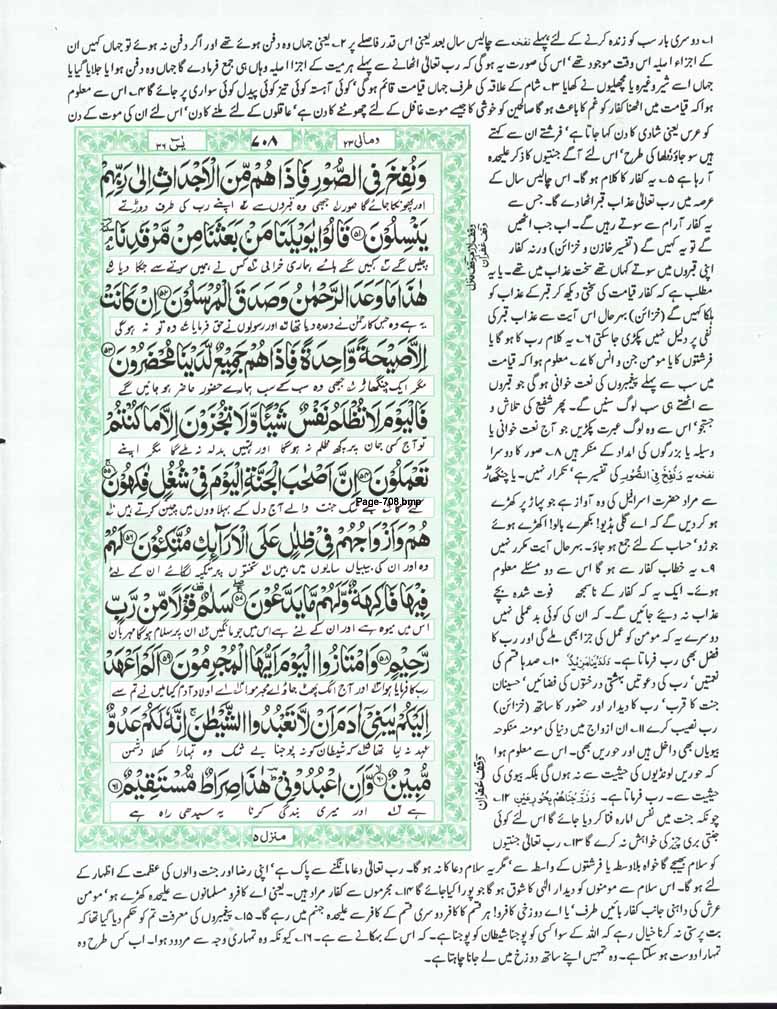 ۱۔ دوسری بار سب کو زندہ کرنے کے لئے پہلے نفخہ سے چالیس سال بعد یعنی اس قدر فاصلے پر ۲۔ یعنی جہاں وہ دفن ہوئے تھے اور اگر دفن نہ ہوئے تو جہاں کہیں ان
کے اجزاء اصلیہ اس وقت موجود تھے' اس کی صورت یہ ہو گی کہ رب تعالیٰ اٹھانے سے پہلے ہر میت کے اجزا اصلیہ وہاں ہی جمع فرما دے گا جہاں وہ دفن ہوا یا جلایا گیا یا
جہاں اسے شیر وغیرہ یا مچھلیوں نے کھایا ۳۔ شام کے علاقہ کی طرف جہاں قیامت قائم ہو گی' کوئی آہستہ کوئی تیز کوئی پیدل کوئی سواری پر جائے گا ۴۔ اس سے معلوم
ہوا کہ قیامت میں اٹھنا کفار کو غم کا باعث ہو گا صالحین کو خوشی کا جیسے موت غافل کے لئے چھوٹنے کا دن ہے' عاقلوں کے لئے ملنے کا دن' اس لئے ان کی موت کے دن
کو عرس یعنی شادی کا دن کہا جاتا ہے' فرشتے ان سے کہتے
ہیں سو جاؤ دُلھا کی طرح' اس لئے آگے جنتیوں کا ذکر علیحدہ
آ رہا ہے ۵۔ یہ کفار کا کلام ہو گا۔ اس چالیس سال کے
عرصہ میں رب تعالیٰ عذاب قبر اٹھا دے گا۔ جس سے
یہ کفار آرام سے سوتے رہیں گے۔ اب جب اٹھیں
گے تو یہ کہیں گے (تفسیر خازن و خزائن) ورنہ کفار
اپنی قبروں میں سوتے کہاں تھے سخت عذاب میں تھے۔ یا یہ
مطلب ہے کہ کفار قیامت کی سختی دیکھ کر قبر کے عذاب کو
ہلکا کہیں گے (خزائن) بہرحال اس آیت سے عذاب قبر کی
نفی پر دلیل نہیں پکڑی جا سکتی ۶۔ یہ کلام رب کا ہو گا یا
فرشتوں کا یا مومن جن و انس کا ۷۔ معلوم ہوا کہ قیامت
میں سب سے پہلے پیغمبروں کی نعت خوانی ہو گی جو قبروں
سے اٹھتے ہی سب لوگ سنیں گے۔ پھر شفیع کی تلاش و
جستجو' اس سے وہ لوگ عبرت پکڑیں جو آج نعت خوانی یا
وسیلہ یا بزرگوں کی امداد کے منکر ہیں ۸۔ صور کا دوسرا
نفحہ یہ وَنُفِخَ فِی الصُّوْرِ کی تفسیر ہے' تکرار نہیں۔ یا چنگھاڑ
سے مراد حضرت اسرافیل کی وہ آواز ہے جو پہاڑ پر کھڑے
ہو کر دیں گے کہ اے گلی ہڈیو! بکھرے بالو! اکھڑے ہوئے
جوڑو' حساب کے لئے جمع ہو جاؤ۔ بہرحال آیت مکرر نہیں
۹۔ یہ خطاب کفار سے ہو گا اس سے دو مسئلے معلوم
ہوئے۔ ایک یہ کہ کفار کے ناسمجھ فوت شدہ بچے
عذاب نہ دیئے جائیں گے۔ کہ ان کی کوئی بدعملی نہیں
دوسرے یہ کہ مومن کو عمل کی جزا بھی ملے گی اور رب کا
فضل بھی رب فرماتا ہے۔ وَلَدَيْنَا مَزِيْدٌ ۱۰۔ صدہا قسم کی
نعمتیں' رب کی دعوتیں بہشتی درختوں کی فضائیں' حسینان
جنت کا قرب' رب کا دیدار اور حضور کا ساتھ (خزائن)
رب نصیب کرے ۱۱۔ ان ازواج میں دنیا کی مومنہ منکوحہ
بیویاں بھی داخل ہیں اور حوریں بھی۔ اس سے معلوم ہوا
کہ حوریں لونڈیوں کی حیثیت سے نہ ہوں گی بلکہ بیوی کی
حیثیت سے۔ رب فرماتا ہے۔ وَزَوَّجْنٰهُمْ بِحُوْرٍ عِيْنٍ ۱۲۔
چونکہ جنت میں نفس امارہ فنا کر دیا جائے گا اس لئے کوئی
جنتی بری چیز کی خواہش نہ کرے گا ۱۳۔ رب تعالیٰ جنتیوں
ومالی ۲۳
۷۰۸
یٰسٓ ۳۶
وَنُفِخَ فِي الصُّوْرِ فَاِذَا هُمْ مِّنَ الْاَجْدَاثِ اِلٰى رَبِّهِمْ
اور پھونکا جائے گا صور جبھی وہ قبروں سے اپنے رب کی طرف دوڑتے
يَنْسِلُوْنَ ۵۱ قَالُوْا يٰوَيْلَنَا مَنْۢ بَعَثَنَا مِنْ مَّرْقَدِنَا
چلیں گے کہیں گے ہائے ہماری خرابی کس نے ہمیں سوتے سے جگا دیا
هٰذَا مَا وَعَدَ الرَّحْمٰنُ وَصَدَقَ الْمُرْسَلُوْنَ ۵۲ اِنْ كَانَتْ
یہ ہے وہ جس کا رحمٰن نے وعدہ دیا تھا اور رسولوں نے حق فرمایا وہ تو نہ ہو گی
اِلَّا صَيْحَةً وَّاحِدَةً فَاِذَا هُمْ جَمِيْعٌ لَّدَيْنَا مُحْضَرُوْنَ ۵۳
مگر ایک چنگھاڑ جبھی وہ سب کے سب ہمارے حضور حاضر ہو جائیں گے
فَالْيَوْمَ لَا تُظْلَمُ نَفْسٌ شَيْـًٔا وَّلَا تُجْزَوْنَ اِلَّا مَا كُنْتُمْ
تو آج کسی جان پر کچھ ظلم نہ ہوگا اور تمہیں بدلہ نہ ملے گا مگر اپنے
تَعْمَلُوْنَ ۵۴ اِنَّ اَصْحٰبَ الْجَنَّةِ الْيَوْمَ فِيْ شُغُلٍ فٰكِهُوْنَ ۵۵
Page-708.bmp
جنت والے آج دل کے بہلاووں میں چین کرتے ہیں
هُمْ وَاَزْوَاجُهُمْ فِيْ ظِلٰلٍ عَلَى الْاَرَآئِكِ مُتَّكِـُٔوْنَ ۵۶ لَهُمْ
وہ اور ان کی بیبیاں سایوں میں ہیں تختوں پر تکیہ لگائے ان کے لئے
فِيْهَا فَاكِهَةٌ وَّلَهُمْ مَّا يَدَّعُوْنَ ۵۷ سَلٰمٌ قَوْلًا مِّنْ رَّبٍّ
اس میں میوہ ہے اور ان کے لئے ہے اس میں جو مانگیں ان پر سلام ہوگا مہربان
رَّحِيْمٍ ۵۸ وَامْتَازُوا الْيَوْمَ اَيُّهَا الْمُجْرِمُوْنَ ۵۹ اَلَمْ اَعْهَدْ
رب کا فرمایا ہوا اور آج الگ پھٹ جاؤ اے مجرمو اے اولاد آدم کیا میں نے تم سے
اِلَيْكُمْ يٰبَنِيْٓ اٰدَمَ اَنْ لَّا تَعْبُدُوا الشَّيْطٰنَ اِنَّهٗ لَكُمْ عَدُوٌّ
عہد نہ لیا تھا کہ شیطان کو نہ پوجنا بے شک وہ تمہارا کھلا دشمن
مُّبِيْنٌ ۶۰ وَّاَنِ اعْبُدُوْنِيْ هٰذَا صِرَاطٌ مُّسْتَقِيْمٌ ۶۱
ہے اور میری بندگی کرنا یہ سیدھی راہ ہے
منزل ۵
وقف غفران
کو سلام بھیجے گا خواہ بلاواسطہ یا فرشتوں کے واسطے سے' مگر یہ سلام دعا کا نہ ہو گا۔ رب تعالیٰ دعا مانگنے سے پاک ہے' اپنی رضا اور جنت والوں کی عظمت کے اظہار کے
لئے ہو گا۔ اس سلام سے مومنوں کو دیدار الٰہی کا شوق ہو گا جو پورا کیا جائے گا ۱۴۔ مجرموں سے کفار مراد ہیں۔ یعنی اے کافرو مسلمانوں سے علیحدہ کھڑے ہو' مومن
عرش کی داہنی جانب کفار بائیں طرف' یا اے دوزخی کافرو! ہر قسم کا کافر دوسری قسم کے کافر سے علیحدہ جہنم میں رہے گا۔ ۱۵۔ پیغمبروں کی معرفت تم کو حکم دیا گیا تھا کہ
بت پرستی نہ کرنا خیال رہے کہ اللہ کے سوا کسی کو پوجنا شیطان کو پوجنا ہے۔ کہ اس کے بہکانے سے ہے۔ ۱۶۔ کیونکہ وہ تمہاری وجہ سے مردود ہوا۔ اب کس طرح وہ
تمہارا دوست ہو سکتا ہے۔ وہ تمہیں اپنے ساتھ دوزخ میں لے جانا چاہتا ہے۔